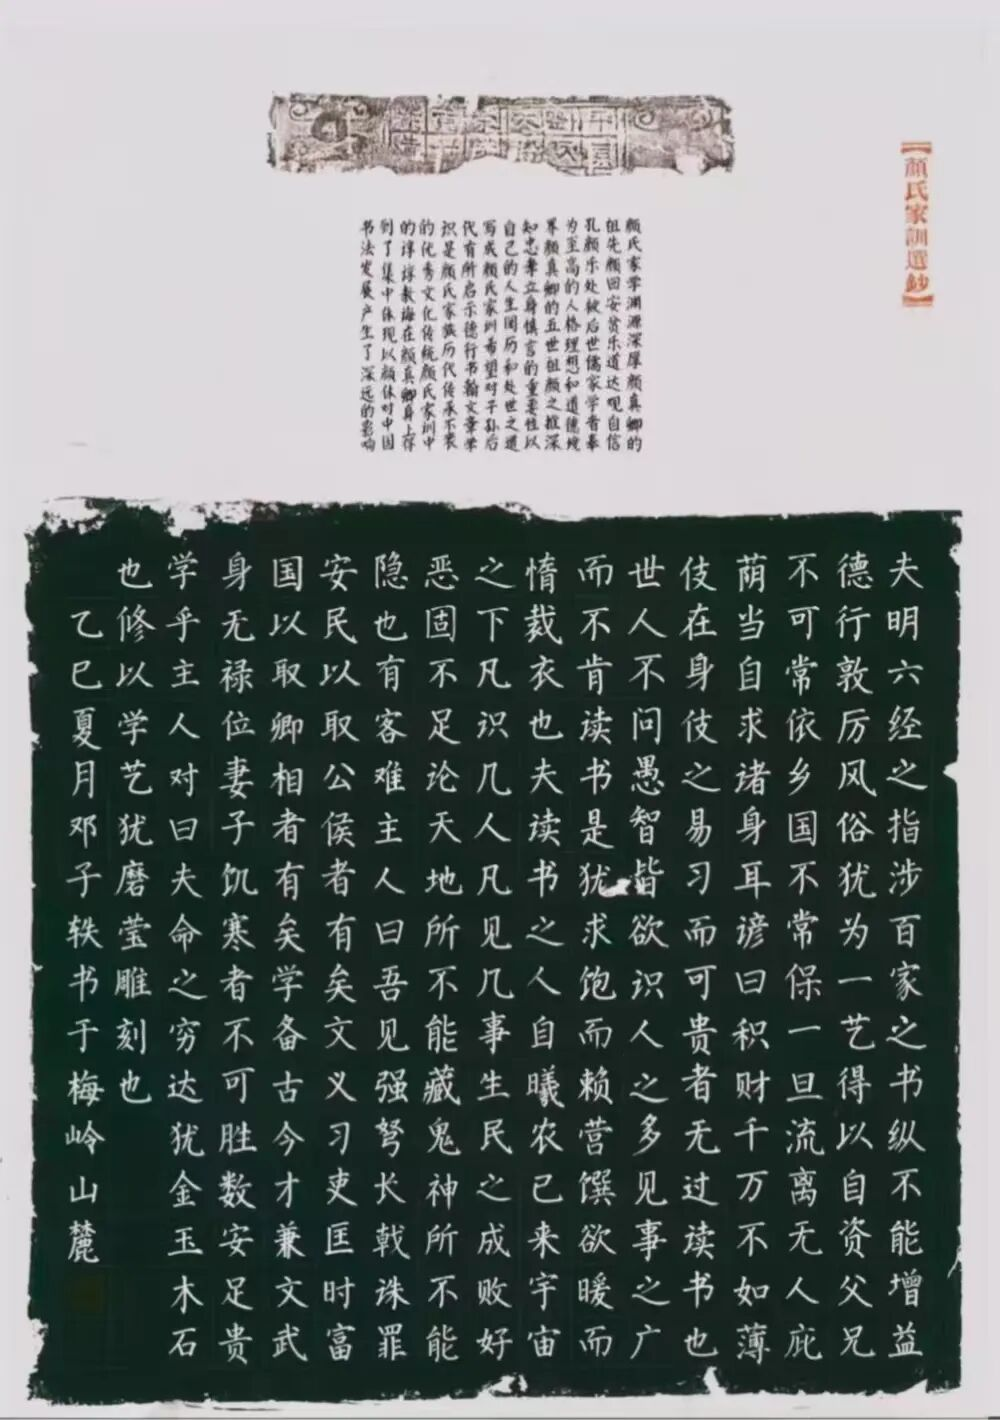 【顏氏家訓選鈔】
颜氏家学渊源深厚颜真卿的
祖先颜回安贫乐道达观自信
孔颜乐处被后世儒家学者奉
为至高的人格理想和道德境
界颜真卿的五世祖颜之推深
知忠孝立身慎言的重要性以
自己的人生阅历和处世之道
写成颜氏家训希望对子孙后
代有所启示德行书翰文章学
识是颜氏家族历代传承不衰
的优秀文化传统颜氏家训中
的谆谆教诲在颜真卿身上得
到了集中体现以颜体对中国
书法发展产生了深远的影响
夫明六经之指涉百家之书纵不能增益
德行敦厉风俗犹为一艺得以自资父兄
不可常依乡国不常保一旦流离无人庇
荫当自求诸身耳谚曰积财千万不如薄
伎在身伎之易习而可贵者无过读书也
世人不问愚智皆欲识人之多见事之广
而不肯读书是犹求饱而赖营馔欲暖而
惰裁衣也夫读书之人自曦农已来宇宙
之下凡识几人凡见几事生民之成败好
恶固不足论天地所不能藏鬼神所不能
隐也有客难主人曰吾见强弩长戟诛罪
安民以取公侯者有矣文义习吏匡时富
国以取卿相者有矣学备古今才兼文武
身无禄位妻子饥寒者不可胜数安足贵
学乎主人对曰夫命之穷达犹金玉木石
也修以学艺犹磨莹雕刻也
乙巳夏月邓子轶书于梅岭山麓